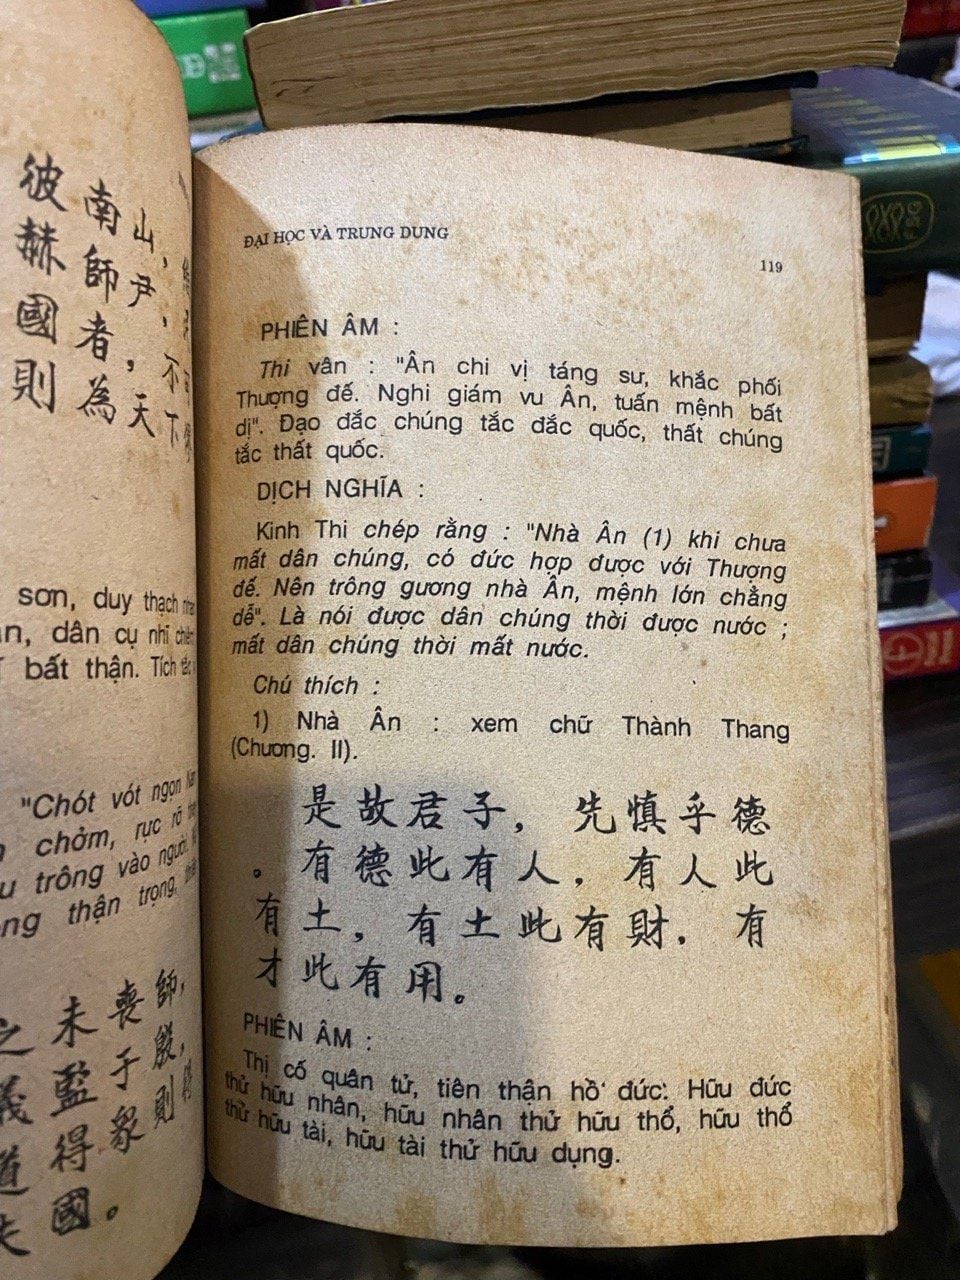 彼赫國則
南師者為
山，尹，天
不下
sơn, duy thạch
dân cụ nhĩ
bất thận. Tích tắc
"Chót vót ngọn
chởm, rực rỡ
trông vào người.
thận trọng,
師，殷，則
喪于衆
未監得國。
之義道失
ĐẠI HỌC VÀ TRUNG DUNG
119
PHIÊN ÂM :
Thi vân : "Ân chi vị táng sư, khắc phối
Thượng đế. Nghi giám vu Ân, tuấn mệnh bất
dị". Đạo đắc chúng tắc đắc quốc, thất chúng
tắc thất quốc.
DỊCH NGHĨA :
Kinh Thi chép rằng : "Nhà Ân (1) khi chưa
mất dân chúng, có đức hợp được với Thượng
đế. Nên trông gương nhà Ân, mệnh lớn chẳng
dễ". Là nói được dân chúng thời được nước ;
mất dân chúng thời mất nước.
Chú thích :
1) Nhà Ân : xem chữ Thành Thang
(Chương. II).
是故君子，先慎乎德
。有德此有人，有人此
有土，有土此有財．有
才此有用。
PHIÊN ÂM :
Thị cố quân tử, tiên thận hồ đức: Hữu đức
thử hữu nhân, hữu nhân thử hữu thổ, hữu thổ
thử hữu tài, hữu tài thử hữu dụng.